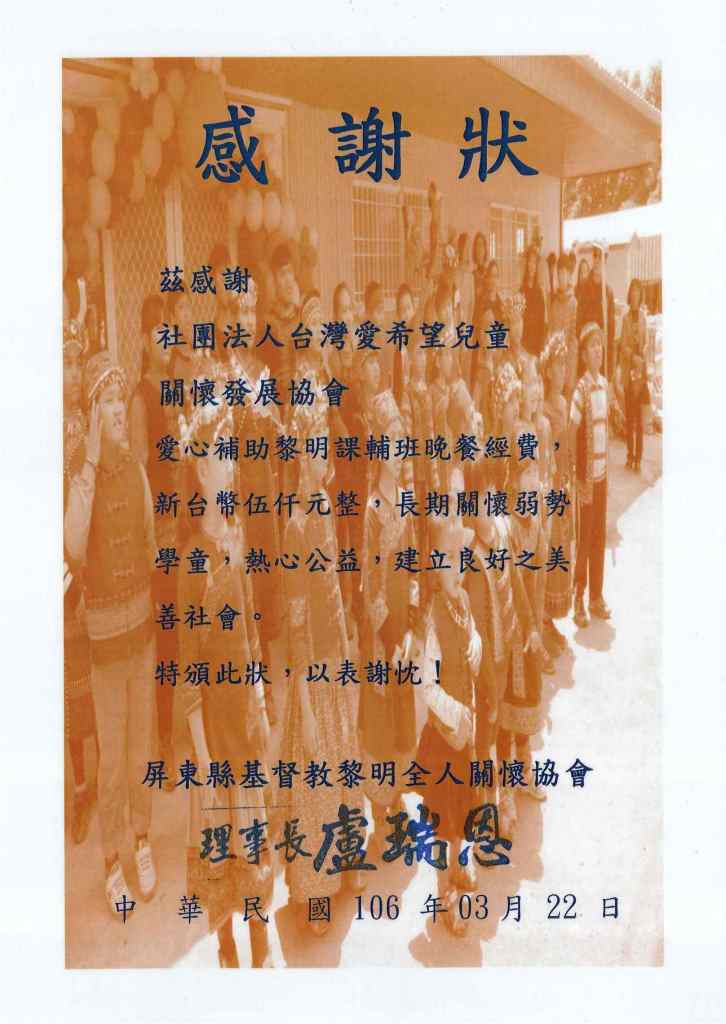 感謝狀
茲感謝
社團法人台灣愛希望兒童
關懷發展協會
愛心補助黎明課輔班晚餐經費，
新台幣伍仟元整，長期關懷弱勢
學童，熱心公益，建立良好之美
善社會。
特頒此狀，以表謝忱！
屏東縣基督教黎明全人關懷協會
理事長盧瑞恩
中華民國 106 年 03 月 22 日